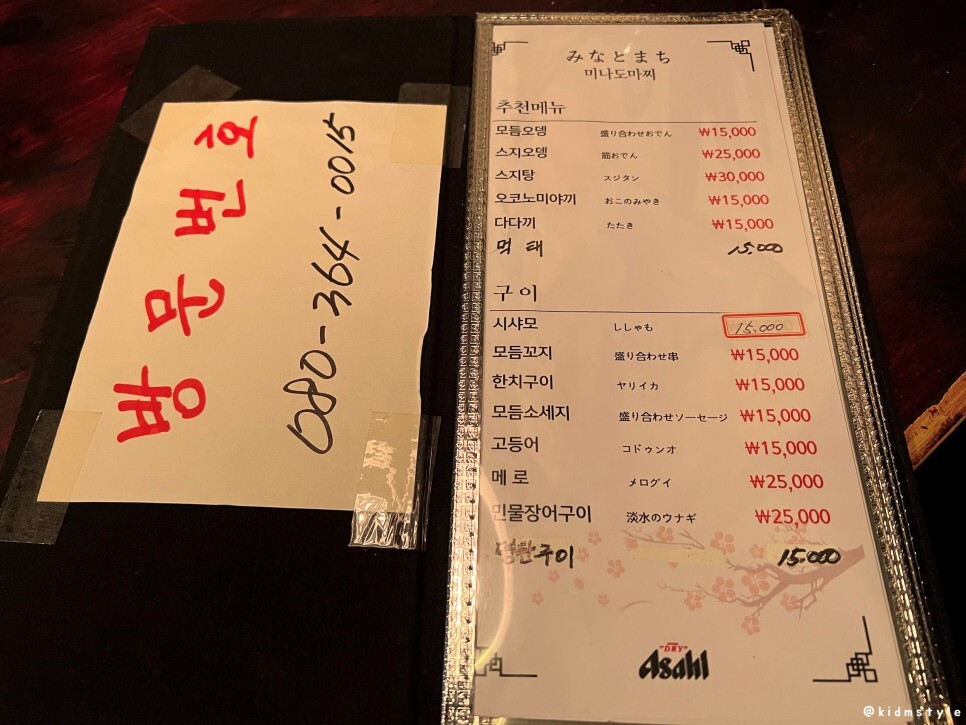 방문번호
080-364-0015
みなとまち
미나도마찌
추천메뉴
모듬오뎅 盛り合わせおでん ₩15,000
스지오뎅 筋おでん ₩25,000
스지탕 スジタン ₩30,000
오코노미야끼 おこのみやき ₩15,000
다다끼 たたき ₩15,000
먹태 15.000
구이
시샤모 ししゃも 15.000
모듬꼬지 盛り合わせ串 ₩15,000
한치구이 ヤリイカ ₩15,000
모듬소세지 盛り合わせソーセージ ₩15,000
고등어 コドゥンオ ₩15,000
메로 メログイ ₩25,000
민물장어구이 淡水のウナギ ₩25,000
명란구이 15.000
"DRY"
Asahi
@kidmstyle